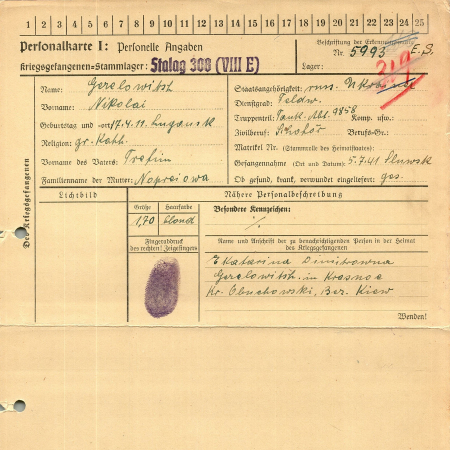 1 2 3 4 5 6 7 8 9 10 11 12 13 14 15 16 17 18 19 20 21 22 23 24 25
Personalkarte I: Personelle Angaben
Kriegsgefangenen-Stammlager: Stalag 308 (VIII E)
Beschriftung der Erkennungsmarke
Nr. 5993 E.S.
Lager:
219
Des Kriegsgefangenen
Name: Gerelowitsh
Vorname: Nikolai
Geburtstag und -ort: 17.4.11 Lugansk
Religion: gr. Kath.
Vorname des Vaters: Trefim
Familienname der Mutter: Nopreiowa
Staatsangehörigkeit: russ. Ukraine
Dienstgrad: Feldw.
Truppenteil: Pank. Abt. 9858 Komp. usw.:
Zivilberuf: Berufs-Gr.:
Matrikel Nr. (Stammrolle des Heimatstaates):
Gefangennahme (Ort und Datum): 5.7.41 Sluwsk
Ob gesund, krank, verwundet eingeliefert: ges.
Lichtbild
Nähere Personalbeschreibung
Größe Haarfarbe
1,70 blond
Besondere Kennzeichen:
Fingerabdruck
des rechten! Zeigefingers
Name und Anschrift der zu benachrichtigenden Person in der Heimat
des Kriegsgefangenen
Katarina Dimitrowna
Gerelowitsh in Krasnoe
Kr. Obuchowski, Bez. Kiew
Wenden!